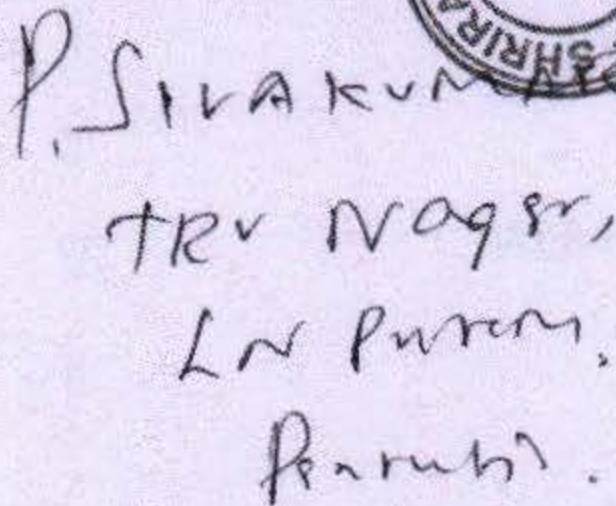 SHRIRA
P. SIVAKUMAR
TRV Nagar,
LN Puram,
Panruti.